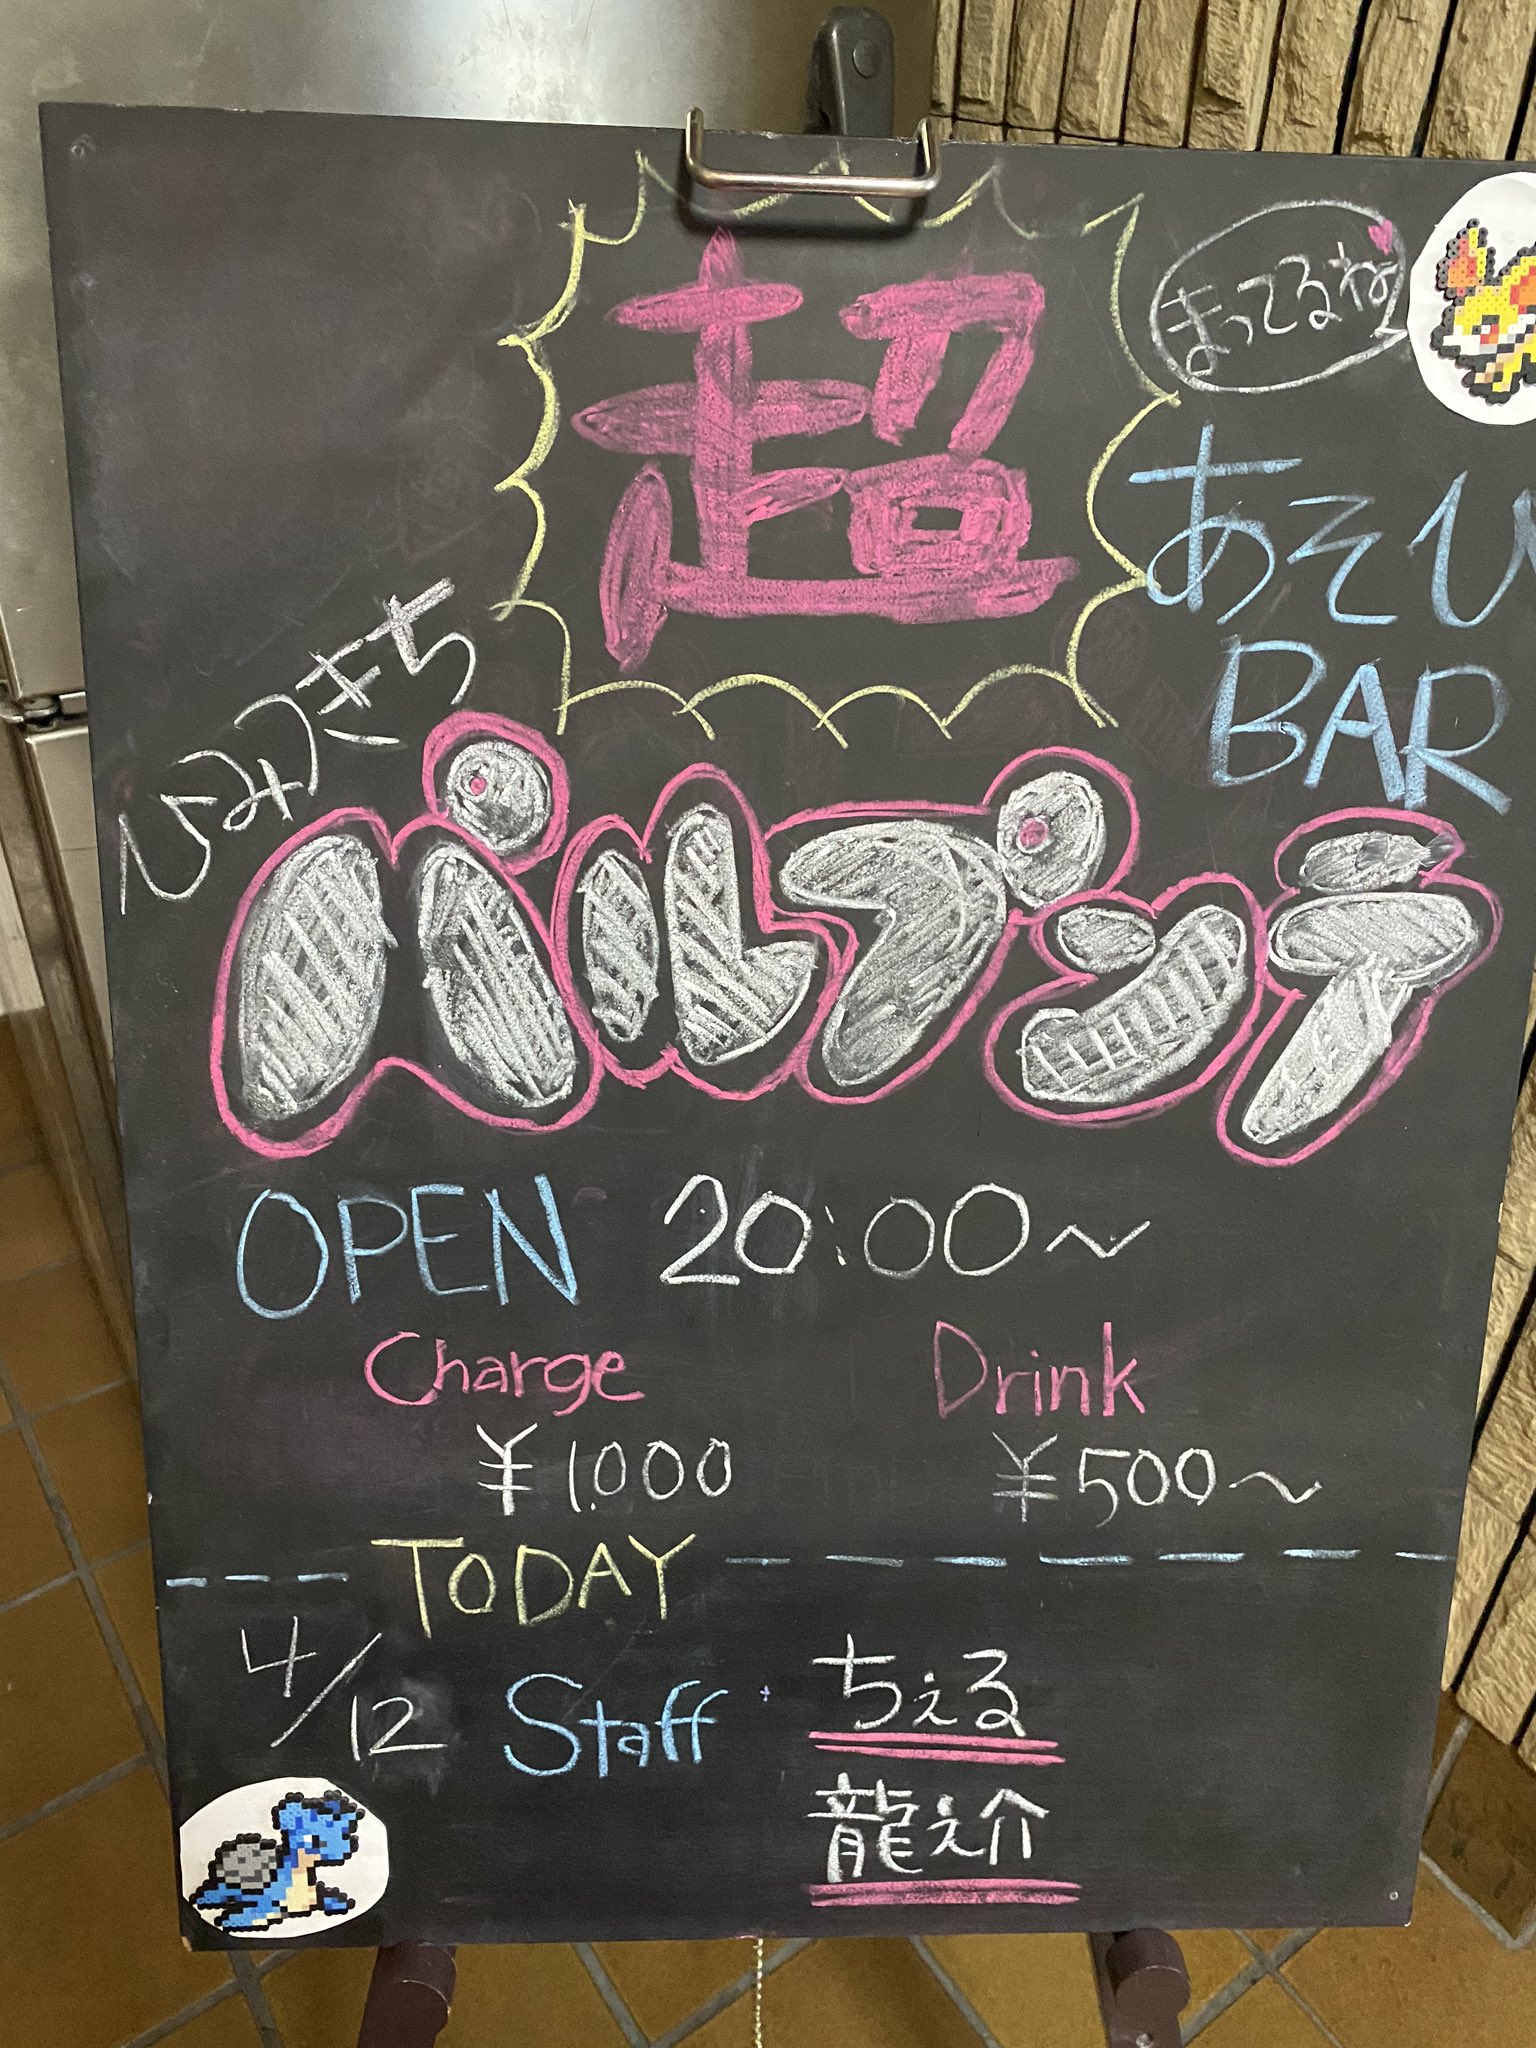 超
まってるね
あそび
BAR
ひみつきち
パルプンテ
OPEN 20:00～
Charge Drink
¥1.000 ¥500～
TODAY
4/12 Staff ちぇる
龍之介